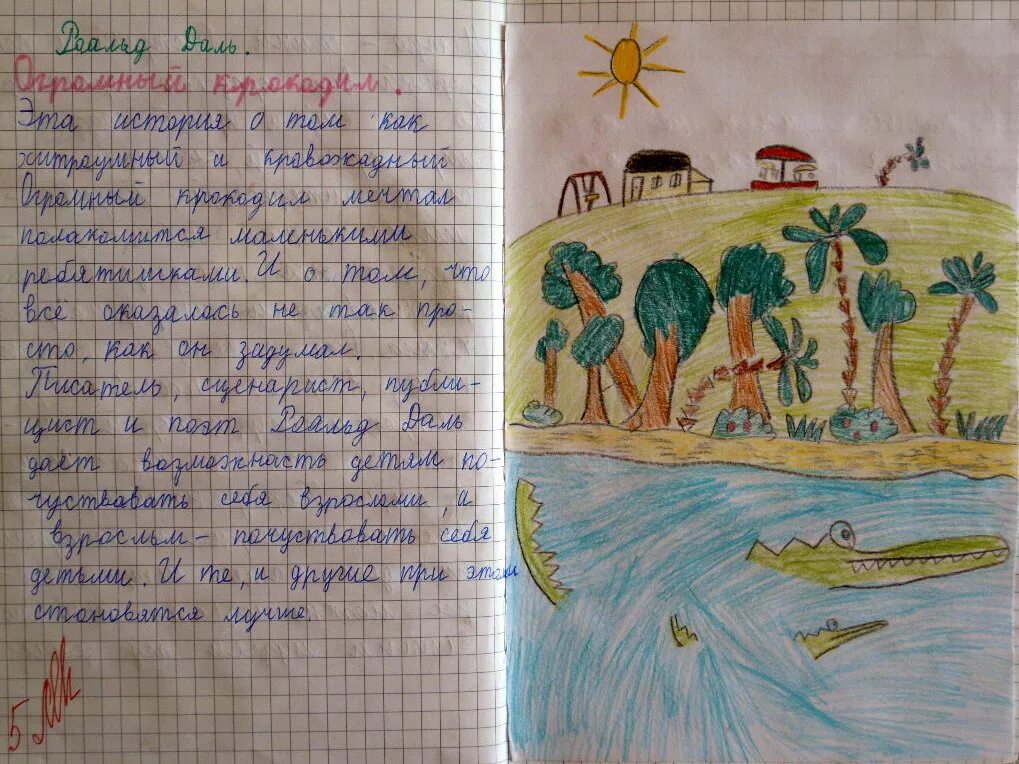 Роальд Даль.
Огромный крокодил.
Эта история о том как
хитроумный и кровожадный
Огромный крокодил мечтал
полакомится маленькими
ребятишками. И о том, что
всё оказалось не так про-
сто, как он задумал.
Писатель, сценарист, публи-
цист и поэт Роальд Даль
дает возможность детям по-
чуствовать себя взрослыми, а
взрослым - почуствовать себя
детьми. И те, и другие при этом
становятся лучше.
5